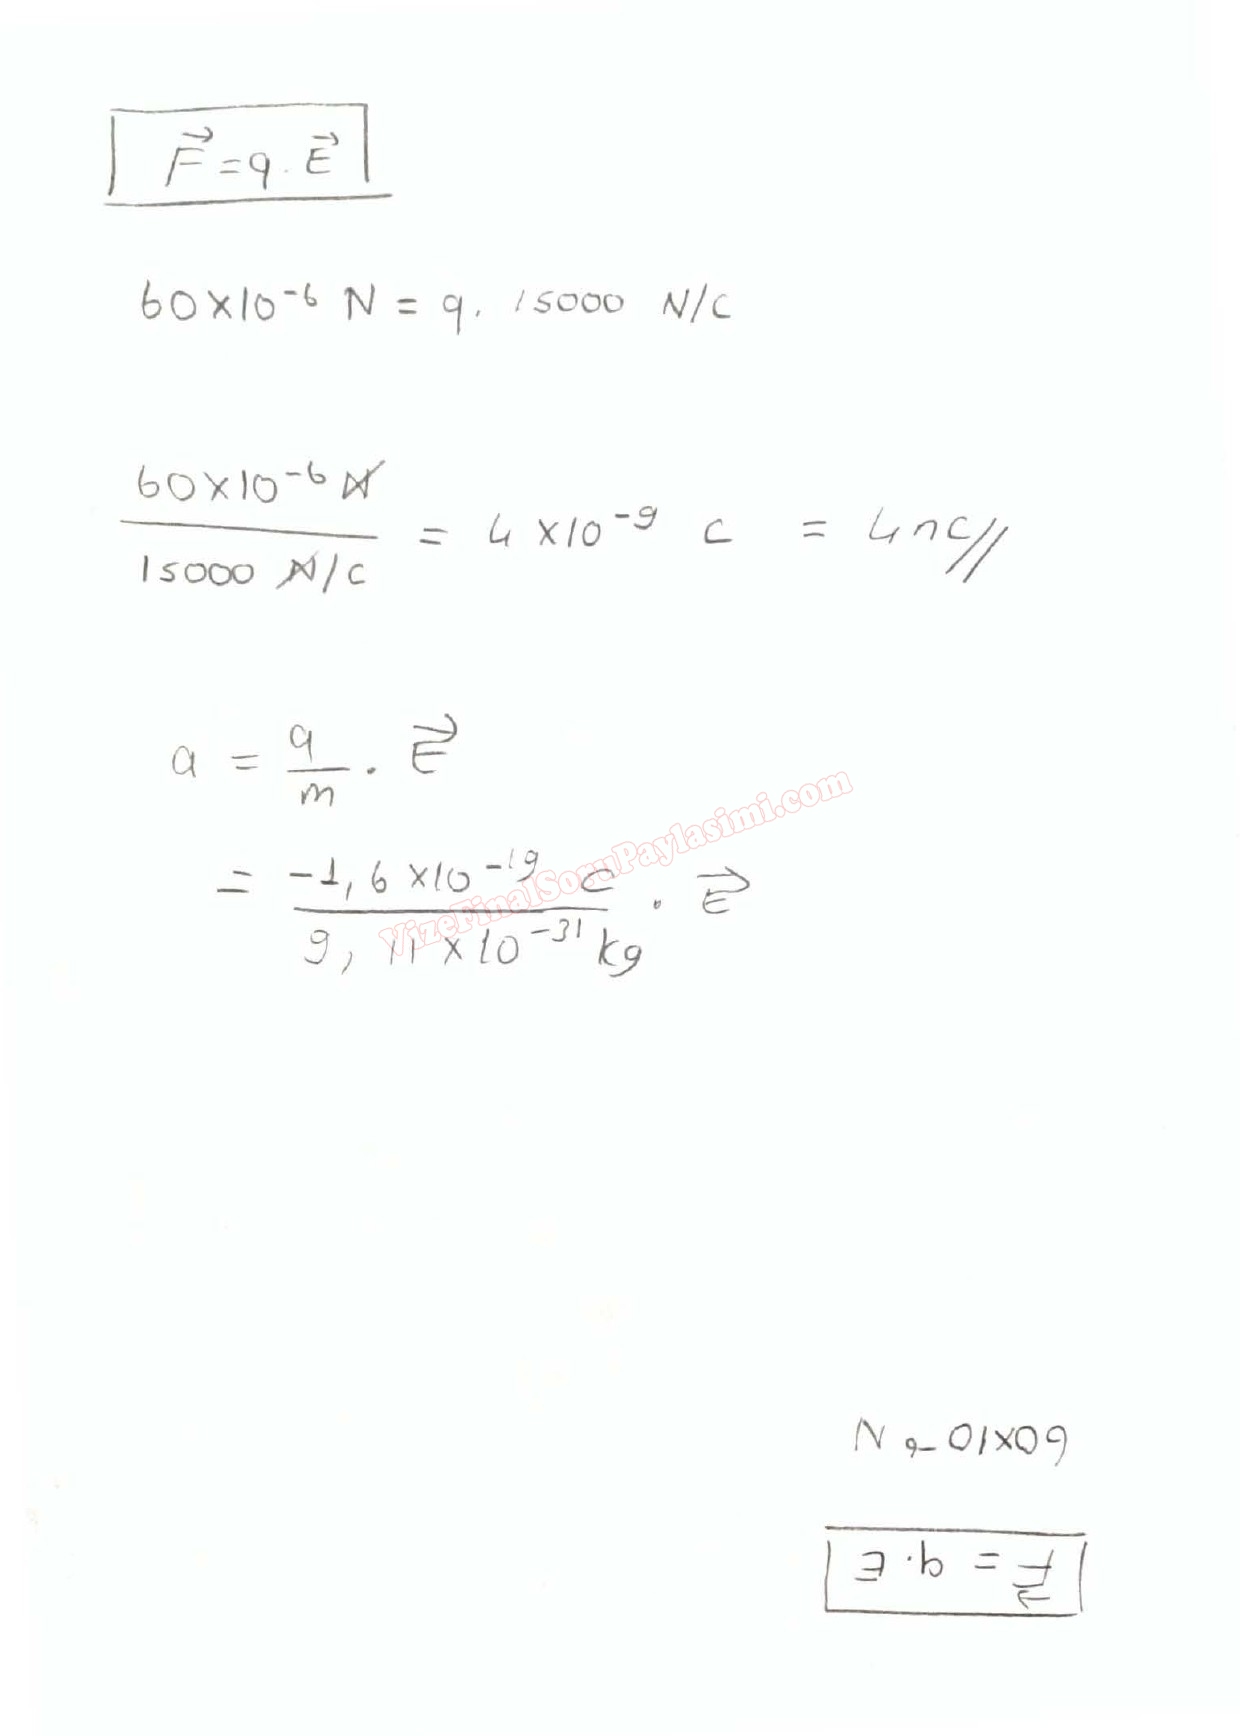 F⃗ = q . E⃗
60x10⁻⁶ N = q . 15000 N/C
60x10⁻⁶ N / 15000 N/C = 4 x10⁻⁹ C = 4nC//
a = q/m . E⃗
= -1,6 x10⁻¹⁹ C / 9,11 x 10⁻³¹ kg . E⃗
VizeFinalSoruPaylasimi.com
60x10⁻⁶ N
F⃗ = q . E